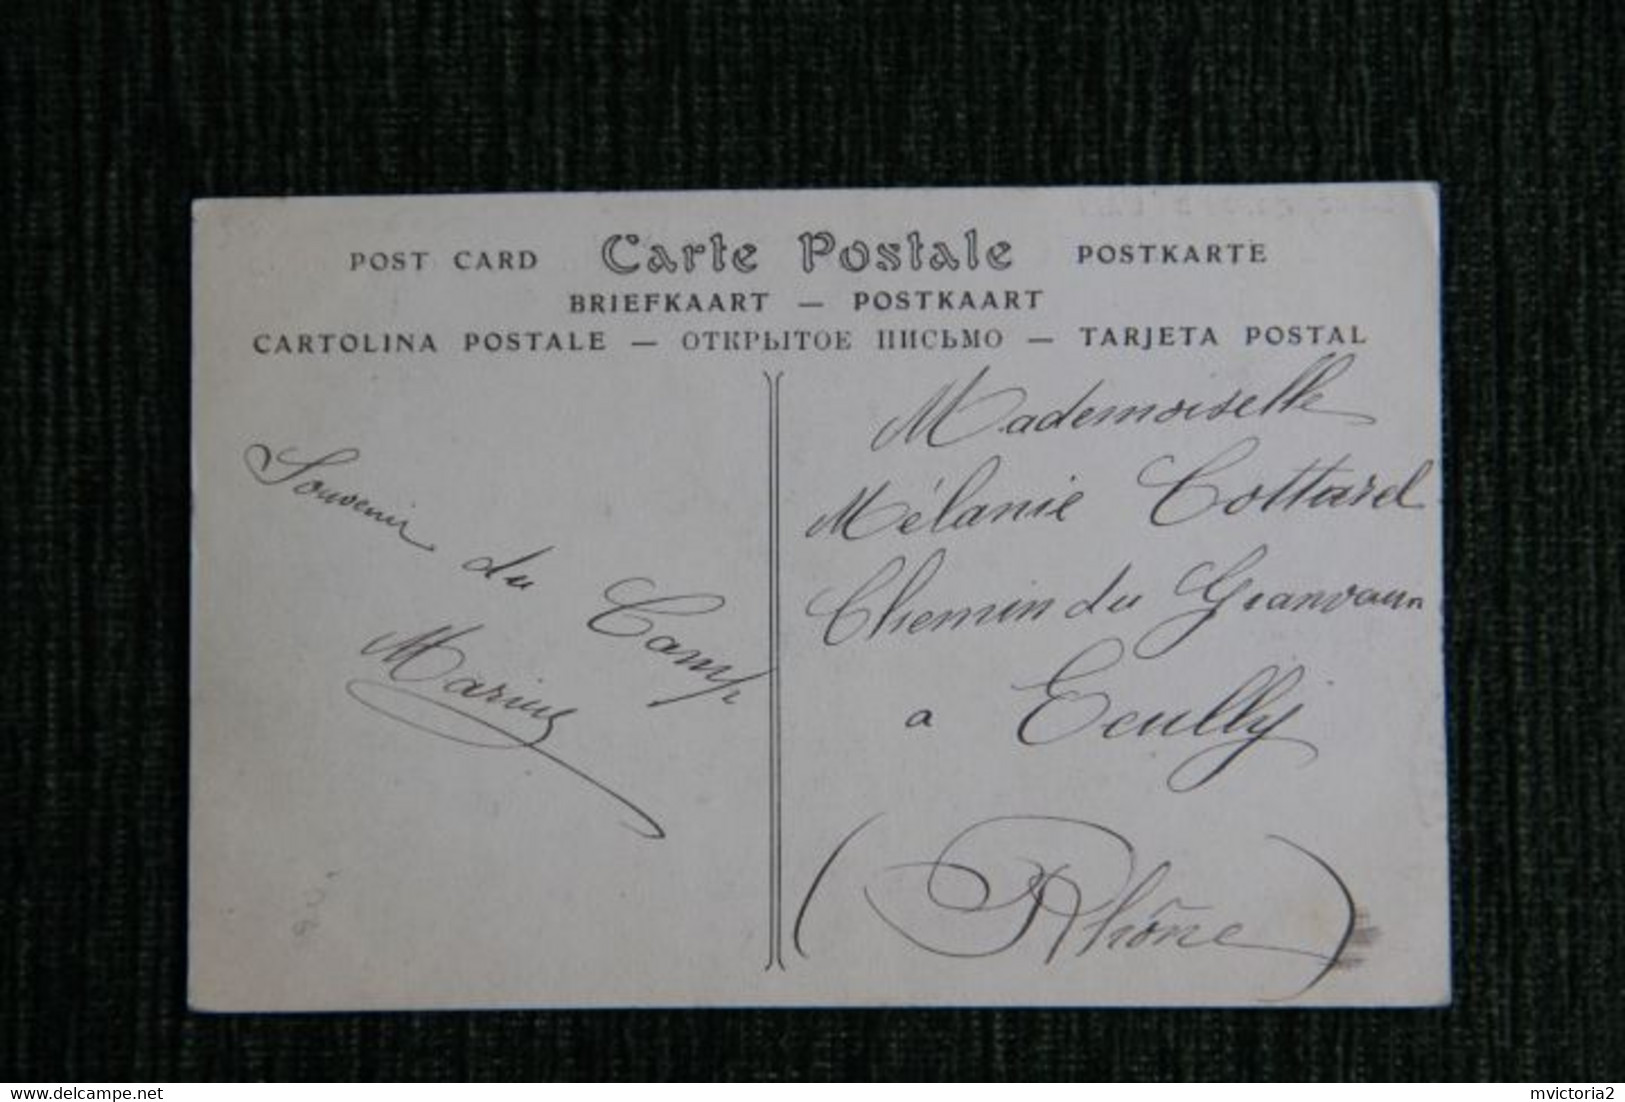 POST CARD Carte Postale POSTKARTE
BRIEFKAART — POSTKAART
CARTOLINA POSTALE — ОТКРЫТОЕ ПИСЬМО — TARJETA POSTAL
Souvenir du Camp
Marius
Mademoiselle
Mélanie Cottarel
Chemin du Granvaux
a Ecully
(Rhône)
delcampe.net
mvictoria2